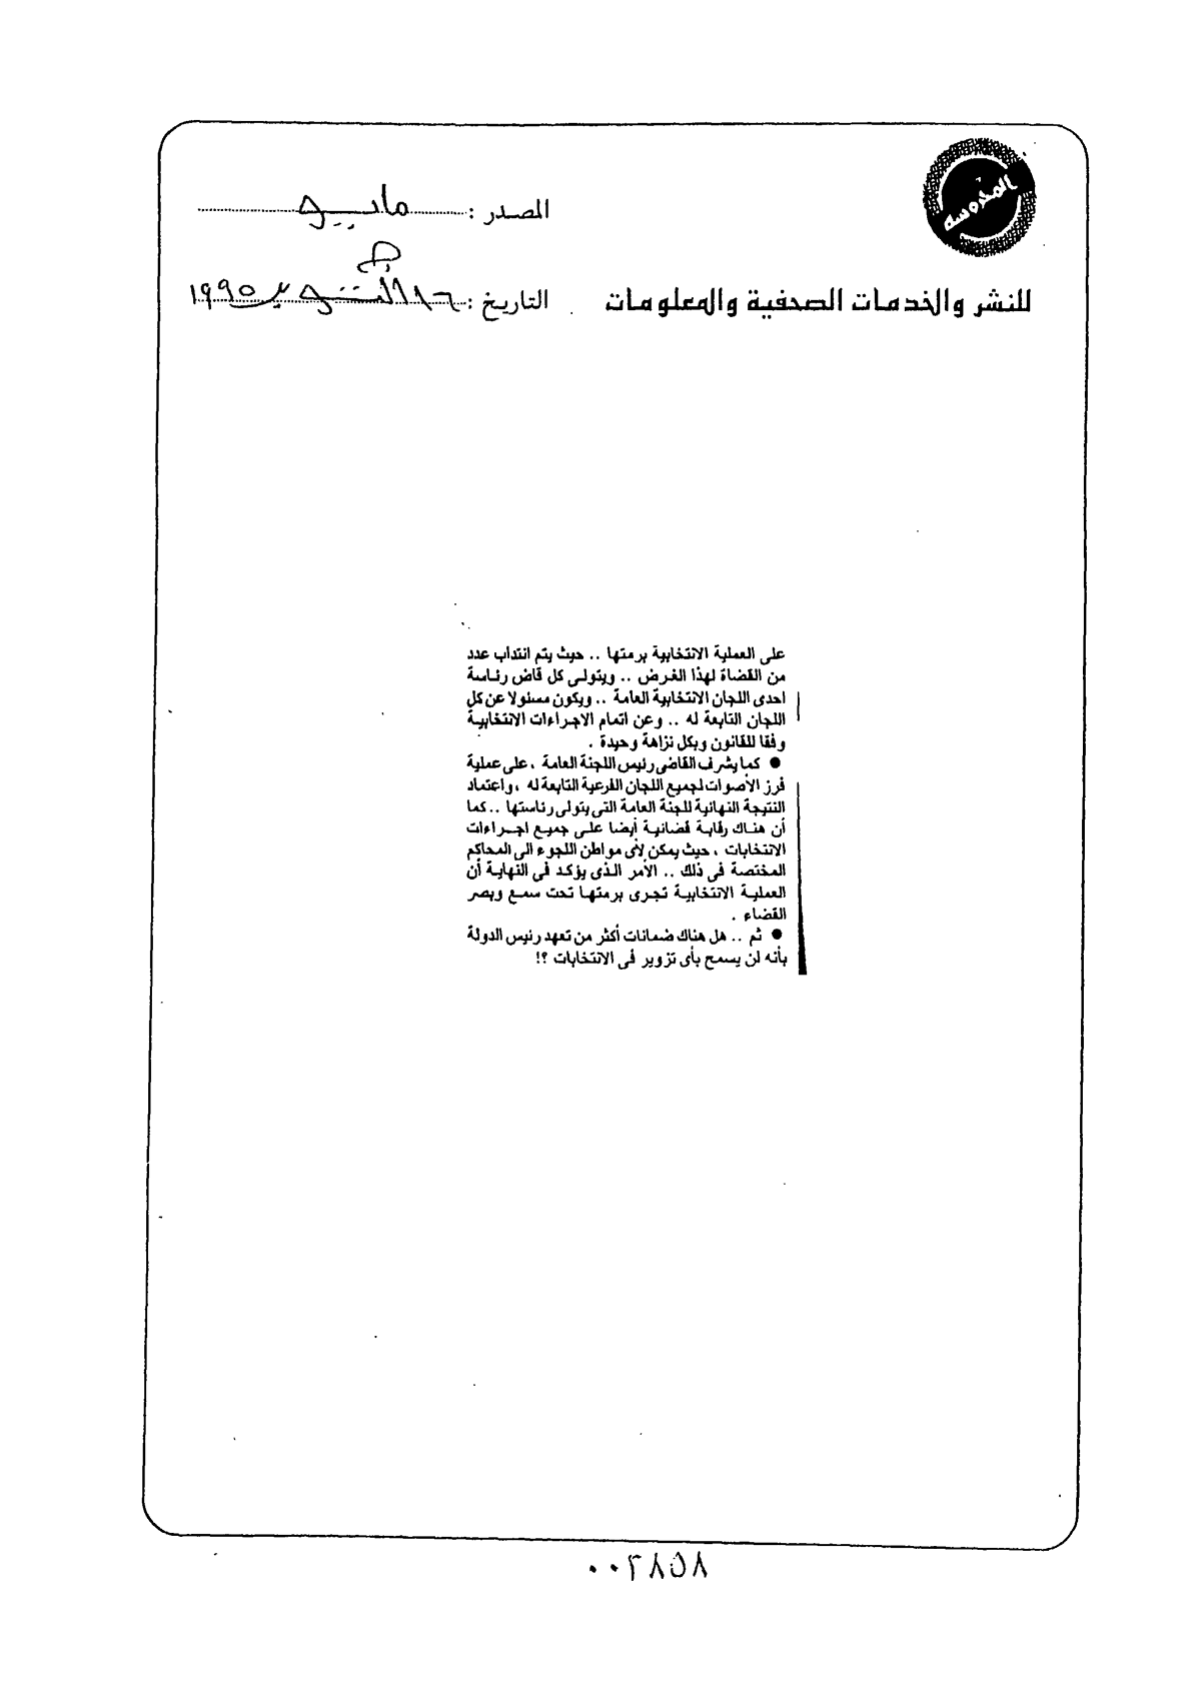 المحروسه
المصدر : مايو
للنشر والخدمات الصحفية والمعلومات
التاريخ : ١٦ أكتوبر ١٩٩٥
على العملية الانتخابية برمتها .. حيث يتم انتداب عدد
من القضاة لهذا الغرض .. ويتولى كل قاض رئاسة
احدى اللجان الانتخابية العامة .. ويكون مسئولا عن كل
اللجان التابعة له .. وعن اتمام الاجراءات الانتخابية
وفقا للقانون وبكل نزاهة وحيدة .
● كما يشرف القاضى رئيس اللجنة العامة ، على عملية
فرز الأصوات لجميع اللجان الفرعية التابعة له ، واعتماد
النتيجة النهائية للجنة العامة التى يتولى رئاستها .. كما
أن هناك رقابة قضائية أيضا على جميع اجراءات
الانتخابات ، حيث يمكن لأى مواطن اللجوء الى المحاكم
المختصة فى ذلك .. الأمر الذى يؤكد فى النهاية أن
العملية الانتخابية تجرى برمتها تحت سمع وبصر
القضاء .
● ثم .. هل هناك ضمانات أكثر من تعهد رئيس الدولة
بأنه لن يسمح بأى تزوير فى الانتخابات ؟!
٠٠٢٨٥٨